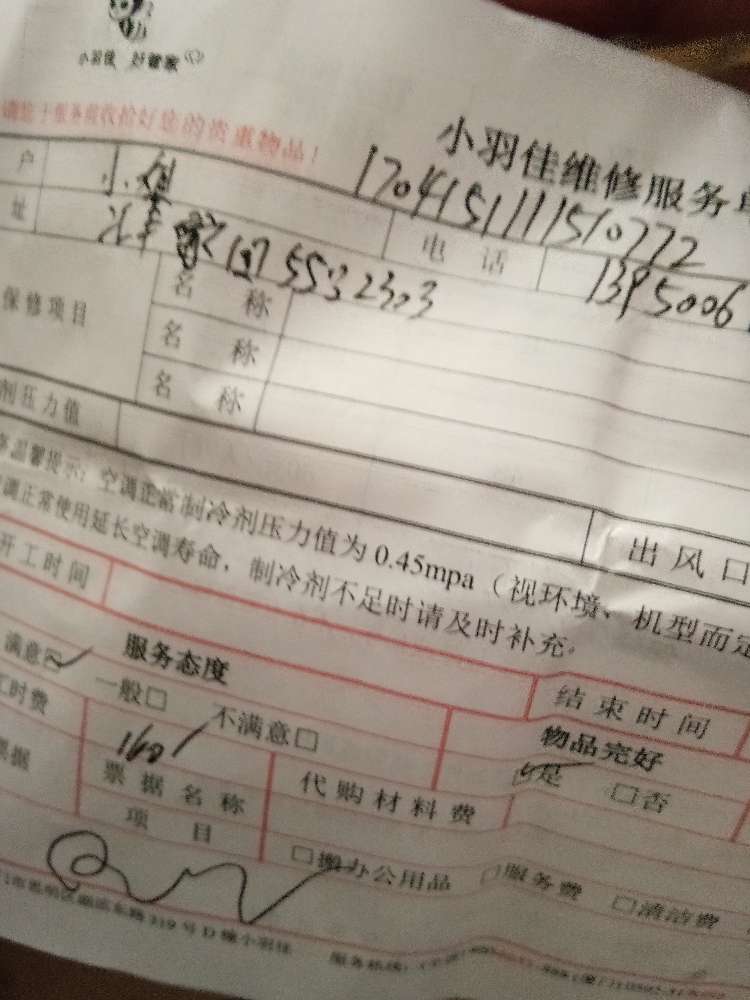 小羽佳 好管家
请您于服务前收拾好您的贵重物品！
小羽佳维修服务单
170415111510772
户 小
址 电 话 1395006
107 5532303
保修项目 名 称
名 称
名 称
剂压力值 出风口
温馨提示：空调正常制冷剂压力值为0.45mpa（视环境、机型而定
调正常使用延长空调寿命，制冷剂不足时请及时补充。
开工时间 结束时间
服务态度 物品完好
满意☑ 一般□ 不满意□ ☑是 □否
工时费 160 代购材料费
票据 票据名称 □搬办公用品 □服务费 □清洁费
项 目
319号D幢小羽佳 服务热线：